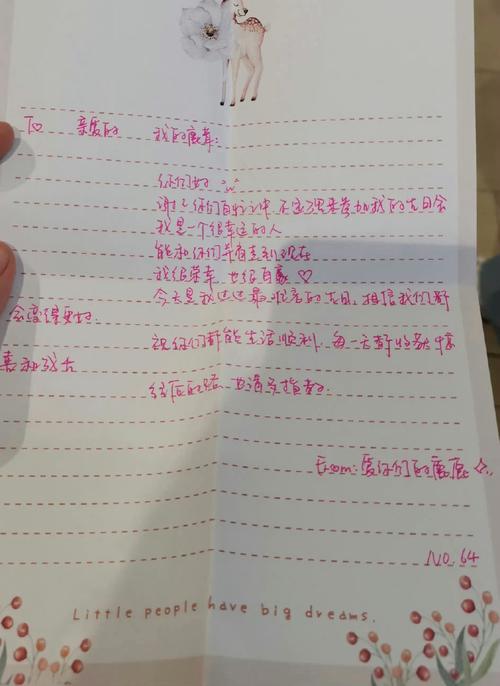 To 亲爱的 我的鹿茸:
你们好
谢谢你们百忙之中 不远万里来参加我的生日会
我是一个很幸运的人
能和你们并肩走到现在
我很荣幸 也很自豪♡
今天是我过过最 的生日,相信我们都
会变得更好.
祝你们都能生活顺利、每一天都
喜和
往后的路 也请多指教.
From:爱你们的鹿鹿☆
NO.64
Little people have big dreams.